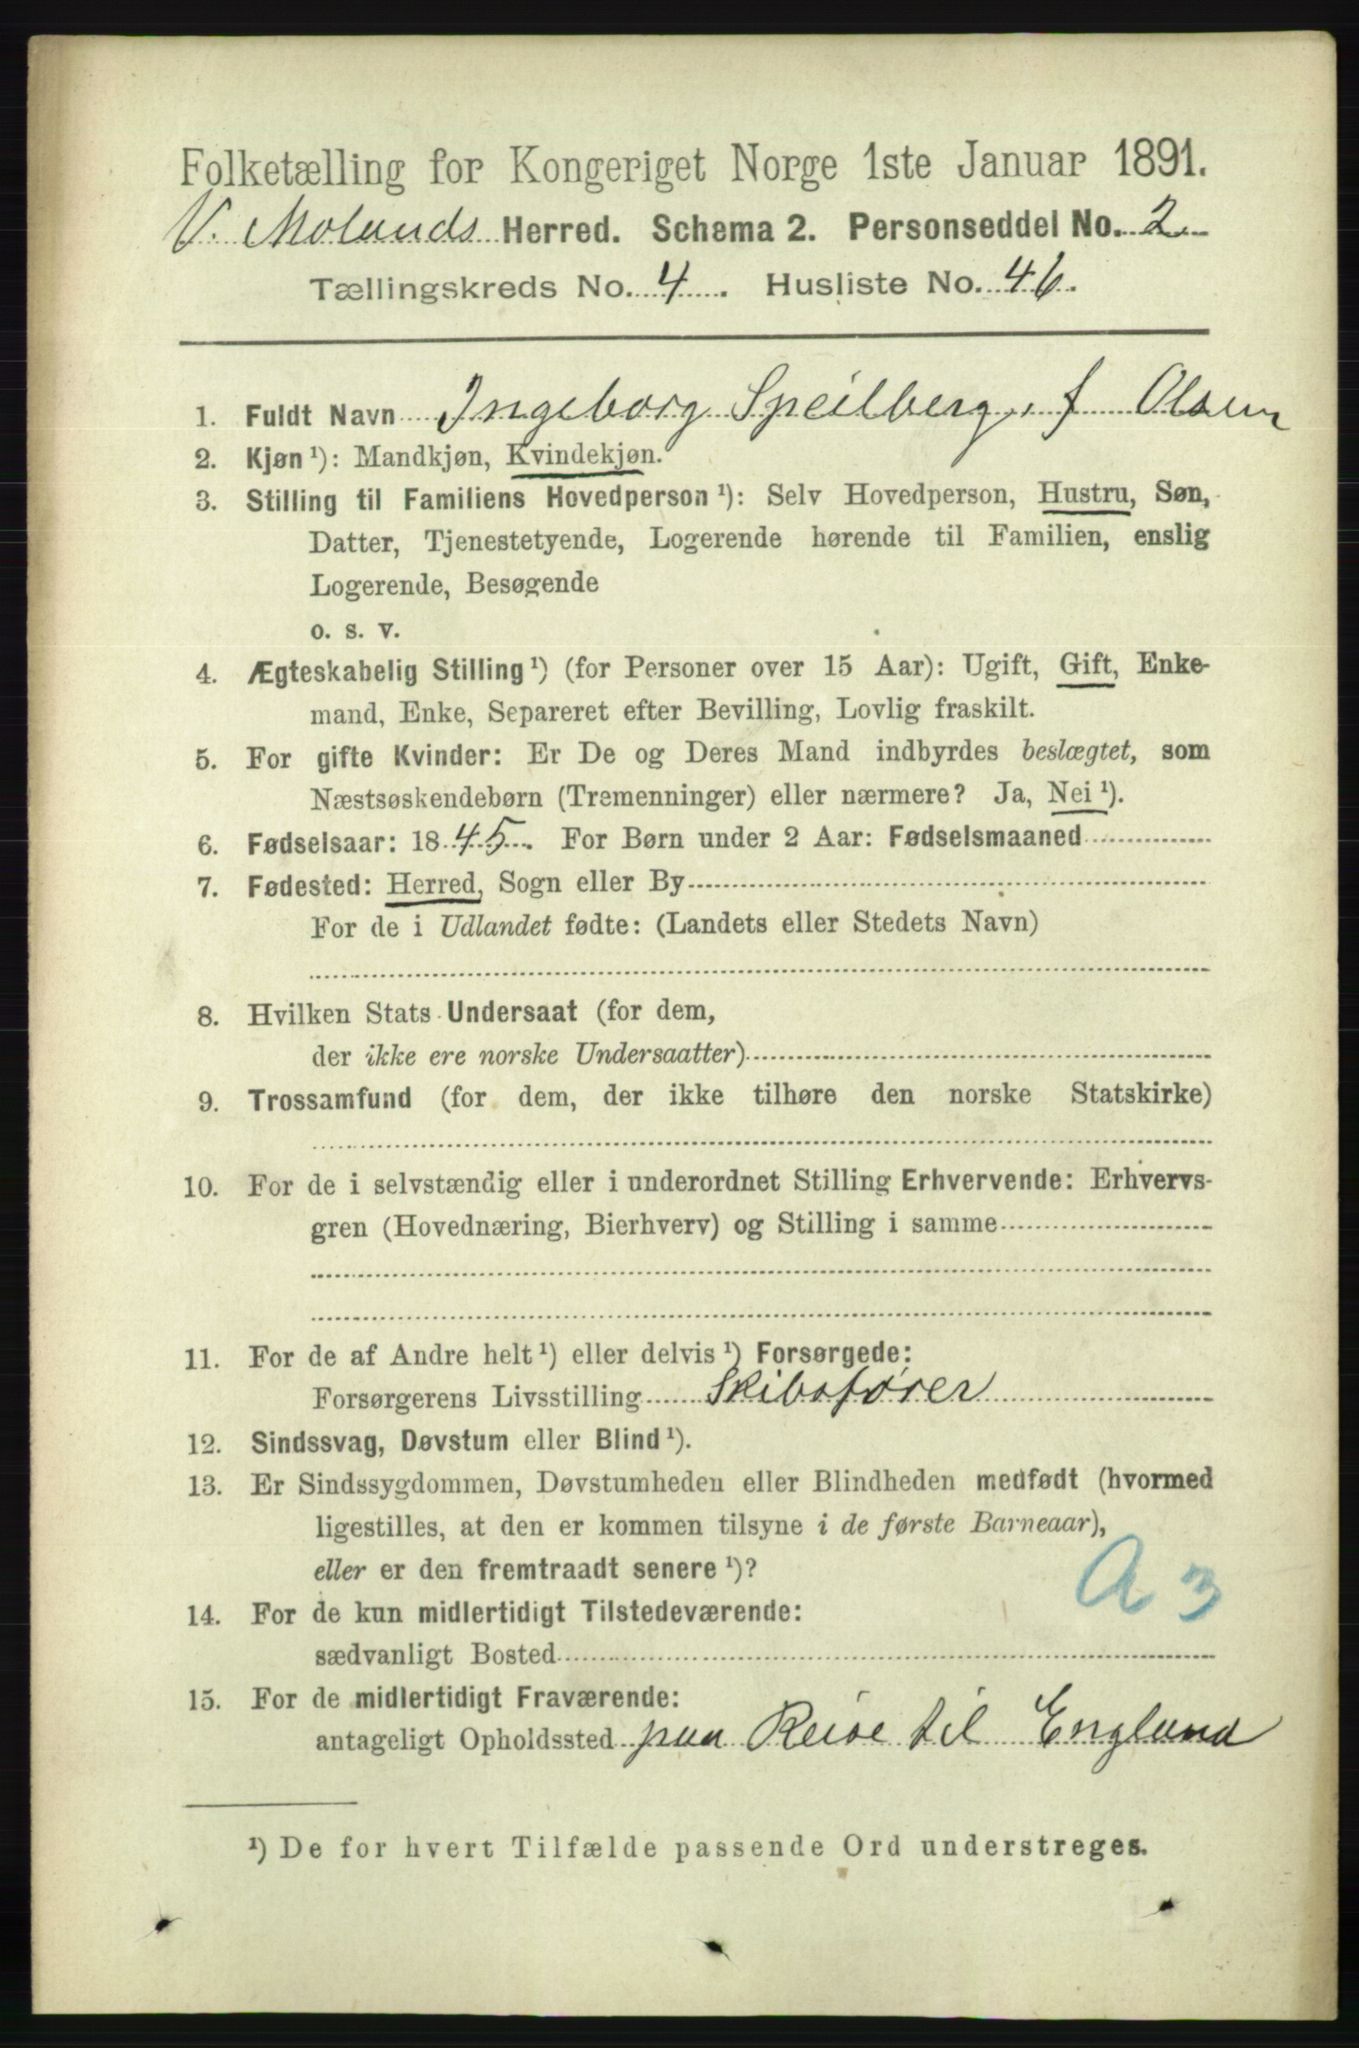 Folketælling for Kongeriget Norge 1ste Januar 1891.
V. Molands Herred. Schema 2. Personseddel No. 2
Tællingskreds No. 4. Husliste No. 46.
1. Fuldt Navn Ingeborg Speilberg, f Olsen
2. Kjøn ¹): Mandkjøn, Kvindekjøn.
3. Stilling til Familiens Hovedperson ¹): Selv Hovedperson, Hustru, Søn,
Datter, Tjenestetyende, Logerende hørende til Familien, enslig
Logerende, Besøgende
o. s. v.
4. Ægteskabelig Stilling ¹) (for Personer over 15 Aar): Ugift, Gift, Enke-
mand, Enke, Separeret efter Bevilling, Lovlig fraskilt.
5. For gifte Kvinder: Er De og Deres Mand indbyrdes beslægtet, som
Næstsøskendebørn (Tremenninger) eller nærmere? Ja, Nei ¹).
6. Fødselsaar: 1845. For Børn under 2 Aar: Fødselsmaaned
7. Fødested: Herred, Sogn eller By
For de i Udlandet fødte: (Landets eller Stedets Navn)
8. Hvilken Stats Undersaat (for dem,
der ikke ere norske Undersaatter)
9. Trossamfund (for dem, der ikke tilhøre den norske Statskirke)
10. For de i selvstændig eller i underordnet Stilling Erhvervende: Erhvervs-
gren (Hovednæring, Bierhverv) og Stilling i samme
11. For de af Andre helt ¹) eller delvis ¹) Forsørgede:
Forsørgerens Livsstilling Skibsfører
12. Sindssvag, Døvstum eller Blind ¹).
13. Er Sindssygdommen, Døvstumheden eller Blindheden medfødt (hvormed
ligestilles, at den er kommen tilsyne i de første Barneaar),
eller er den fremtraadt senere ¹)?
A 3
14. For de kun midlertidigt Tilstedeværende:
sædvanligt Bosted
15. For de midlertidigt Fraværende:
antageligt Opholdssted paa Reise til England
¹) De for hvert Tilfælde passende Ord understreges.